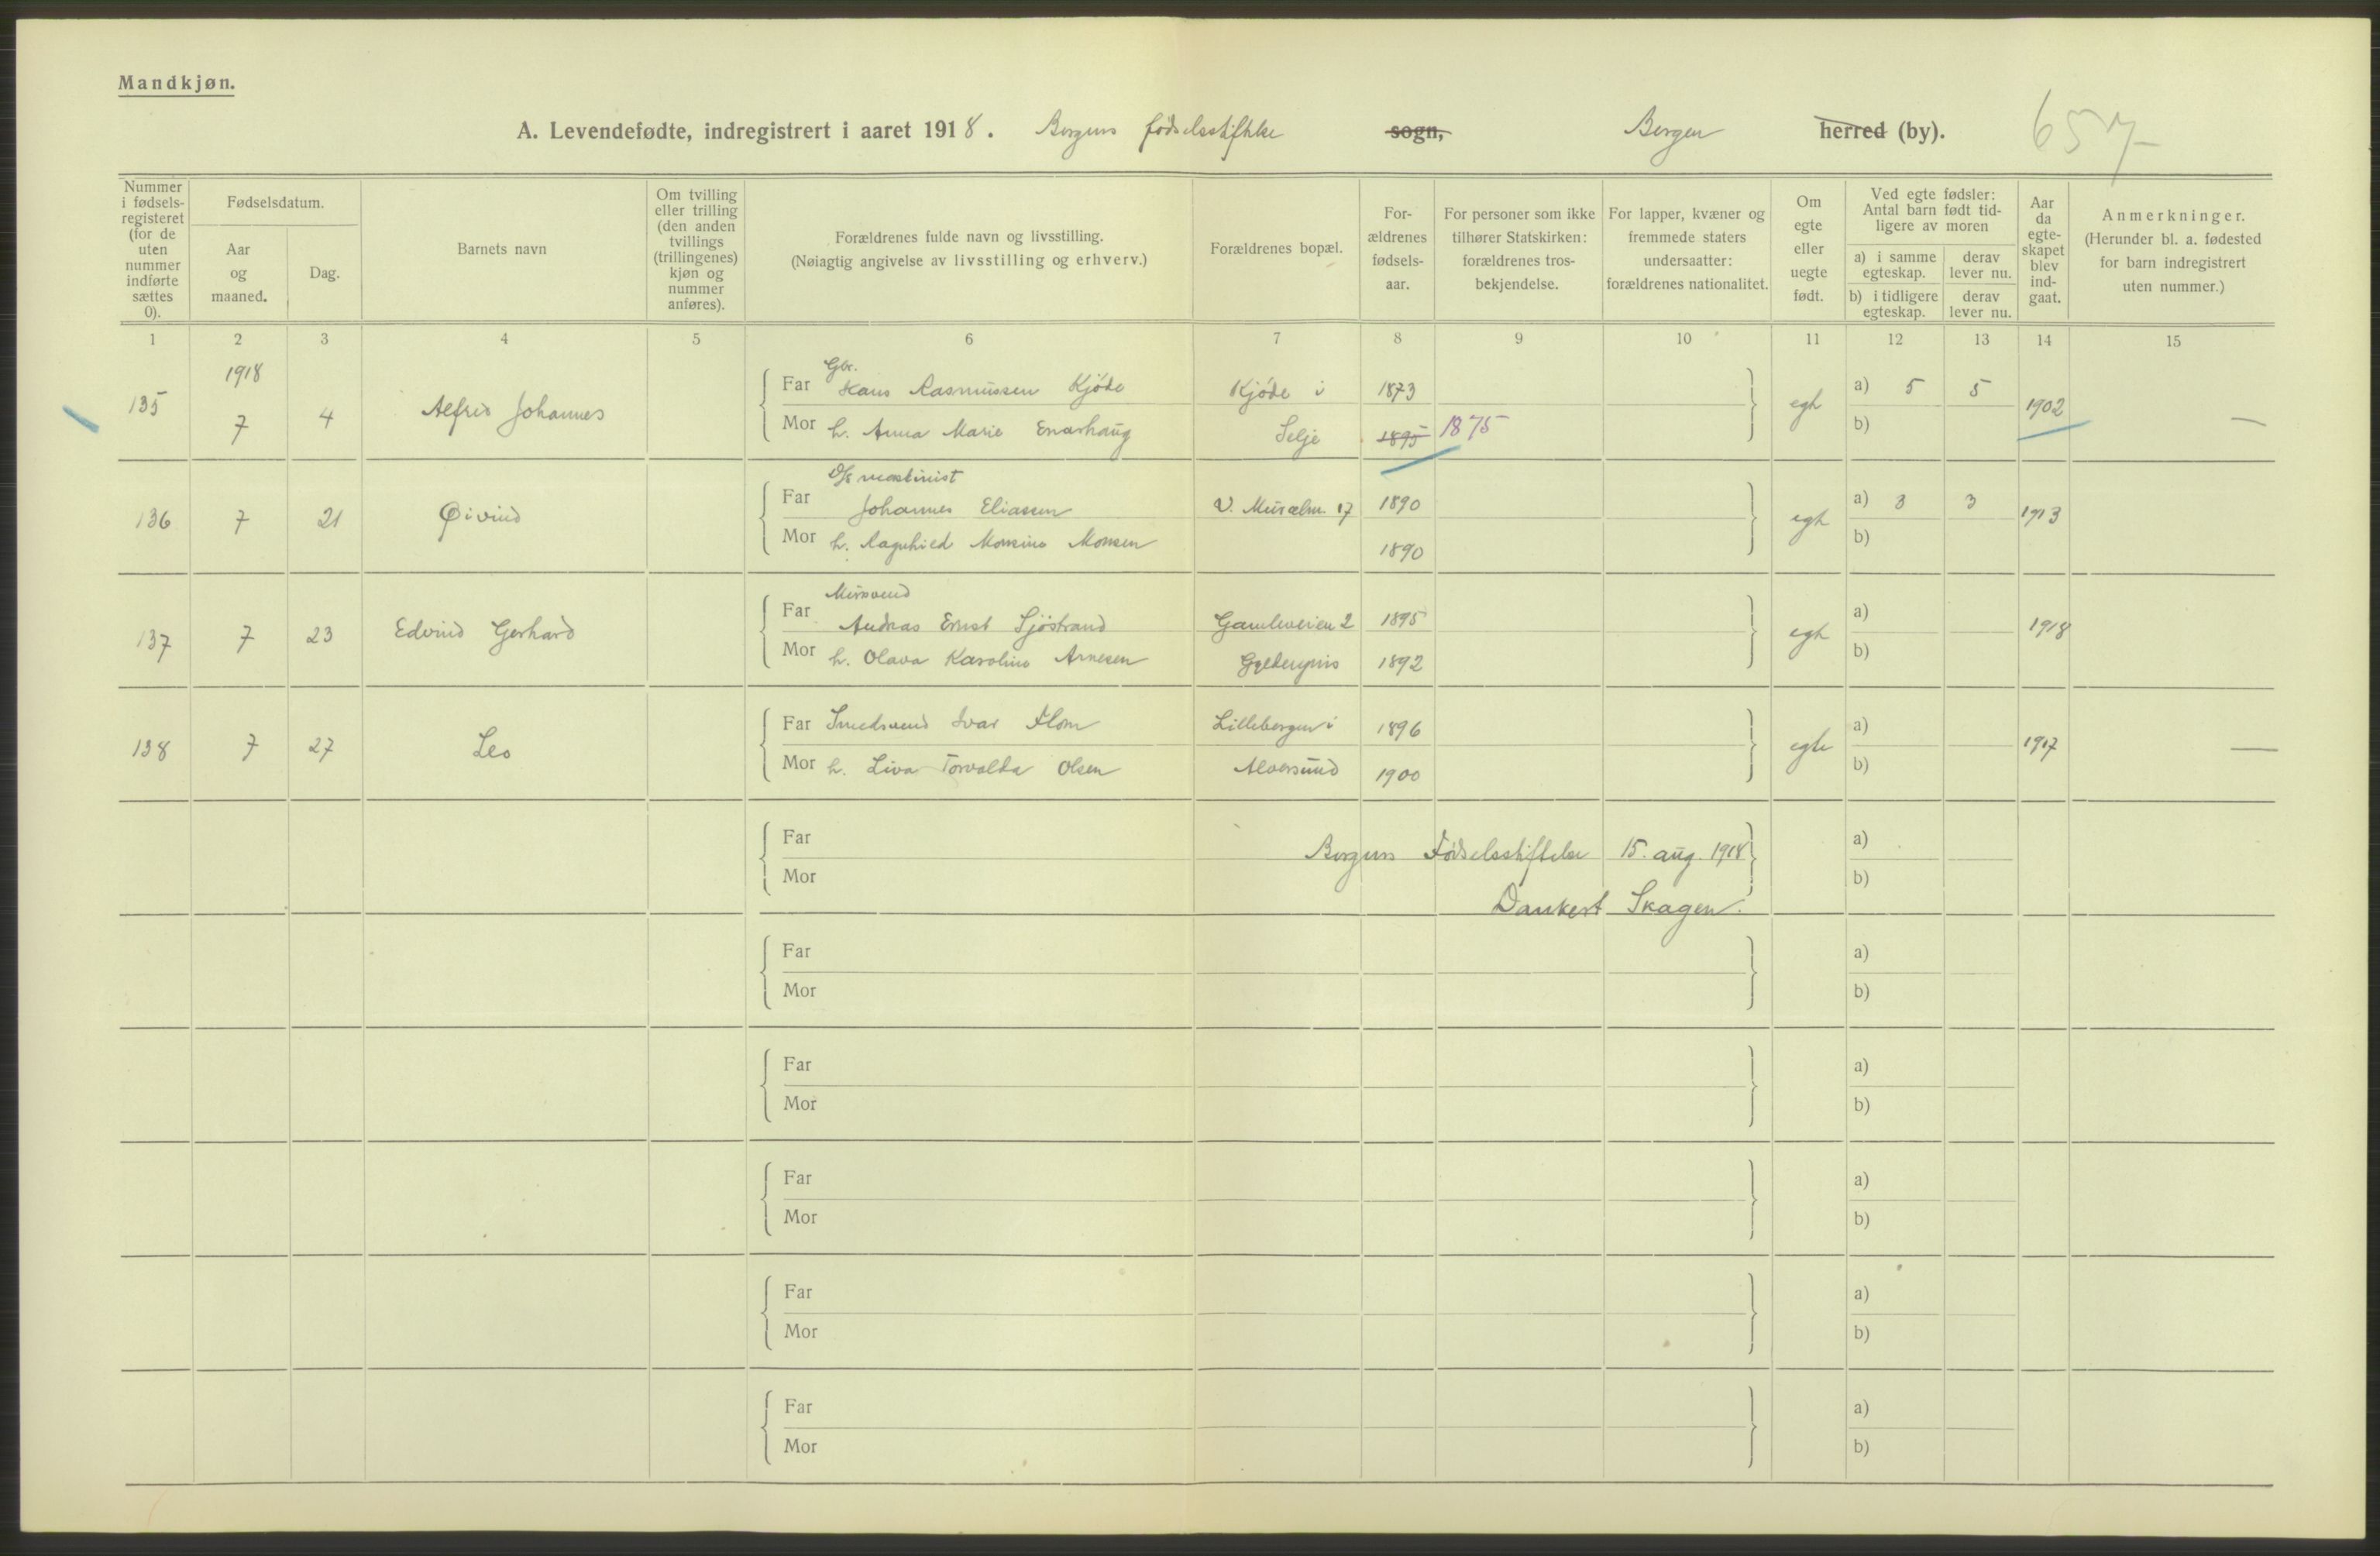 Mandkjøn.
A. Levendefødte, indregistrert i aaret 1918. Bergens fødselsstiftelse sogn, Bergen herred (by). 657
Nummer i fødsels-registeret (for de uten nummer indførte sættes 0).
Fødselsdatum.
Aar og maaned.
Dag.
Barnets navn
Om tvilling eller trilling (den anden tvillings (trillingenes) kjøn og nummer anføres).
Forældrenes fulde navn og livsstilling.
(Nøiagtig angivelse av livsstilling og erhverv.)
Forældrenes bopæl.
For-ældrenes fødsels-aar.
For personer som ikke tilhører Statskirken: forældrenes tros-bekjendelse.
For lapper, kvæner og fremmede staters undersaatter: forældrenes nationalitet.
Om egte eller uegte født.
Ved egte fødsler: Antal barn født tid-ligere av moren
a) i samme egteskap.
derav lever nu.
b) i tidligere egteskap.
derav lever nu.
Aar da egte-skapet blev ind-gaat.
Anmerkninger.
(Herunder bl. a. fødested for barn indregistrert uten nummer.)
1 2 3 4 5 6 7 8 9 10 11 12 13 14 15
1918
Gbr.
135 7 4 Alfred Johannes Far Hans Rasmussen Kjøde Kjøde i 1873 egte a) 5 5 1902 —
Mor h. Anna Marie Selje 1895 1875 b)
D/s maskinist
136 7 21 Øivind Far Johannes Eliassen 17 1890 egte a) 3 3 1913
Mor h. Ragnhild Monsine Monsen 1890 b)
Mursvend
137 7 23 Edvind Gerhard Far Andreas Ernst Sjøstrand Gamleveien 2 1895 egte a) 1918
Mor h. Olava Karoline Arnesen 1892 b)
138 7 27 Leo Far Smedsvend Ivar Flom Lillebergen i 1896 egte a) 1917 —
Mor h. Liva Torvalda Olsen Alversund 1900 b)
Far a)
Bergens Fødselsstiftelse 15. aug. 1918
Mor b)
Dankert Skagen.
Far a)
Mor b)
Far a)
Mor b)
Far a)
Mor b)
Far a)
Mor b)
Far a)
Mor b)